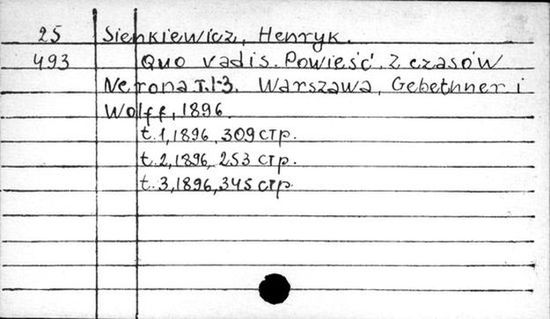 25 Sienkiewicz, Henryk.
493 Quo vadis. Powieść. z czasów
Nerona T.1-3. Warszawa, Gebethner i
Wolff, 1896.
t.1, 1896, 309 стр.
t.2, 1896, 253 стр.
t.3, 1896, 345 стр.